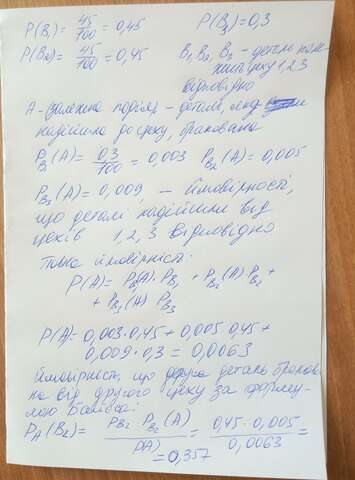 P(B₁) = 45/100 = 0,45   P(B₃) = 0,3
P(B₂) = 45/100 = 0,45   B₁, B₂, B₃ - деталь
цеху 1,2,3
відповідно
A - подія - деталь,
надійшла до цеху, бракована
P_B₁(A) = 0,3/100 = 0,003   P_B₂(A) = 0,005
P_B₃(A) = 0,009 - ймовірності,
що деталі надійшли від
цехів 1,2,3 відповідно
Повна ймовірність:
P(A) = P_B₁(A)·P_B₁ + P_B₂(A) P_B₂ +
+ P_B₃(A) P_B₃
P(A) = 0,003·0,45 + 0,005·0,45 +
0,009·0,3 = 0,0063
Ймовірність, що деталь бракова-
на від другого цеху за форму-
лою Байєса:
P_A(B₂) = P_B₂·P_B₂(A)/P(A) = 0,45·0,005/0,0063 =
= 0,357